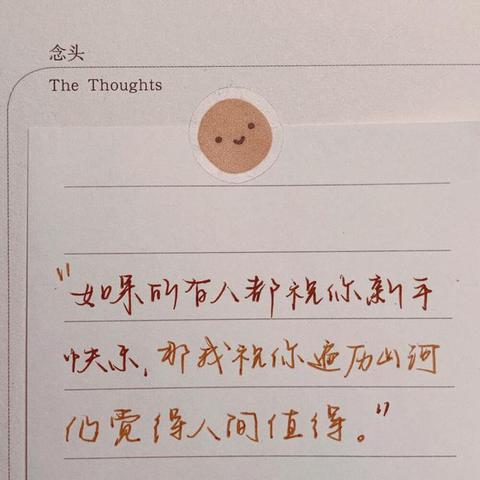 念头
The Thoughts
"如果所有人都祝你新年
快乐,那我祝你遍历山河
仍觉得人间值得。"